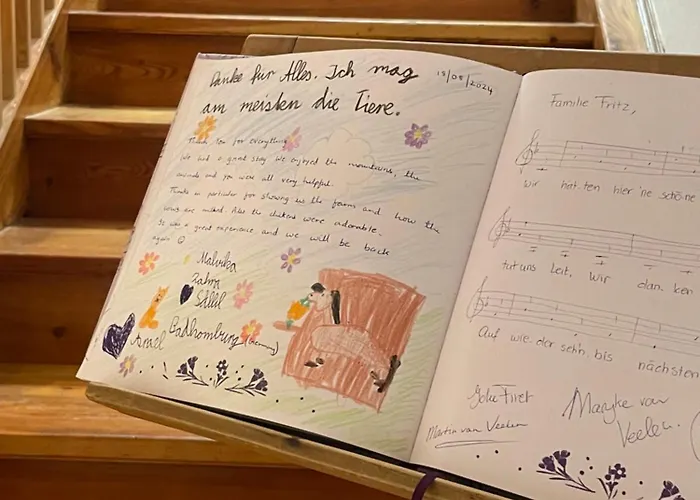 Danke für Alles. Ich mag
15/08/2024
am meisten die Tiere.
Thank you for everything
We had a great stay. We enjoyed the mountains, the
animals and you were all very helpful.
Thanks in particular for showing us the farm and how the
cows are milked. Also the chickens were adorable.
It was a great experience and we will be back
again
Malvika
Zahra
Sahil
Amel Badhomburg (Germany)
Familie Fritz,
Wir hat ten hier 'ne schö ne
tut uns Leit, Wir dan ken
Auf wie der seh'n bis nächsten
Martin van Veelen
Mayke van
Veelen.